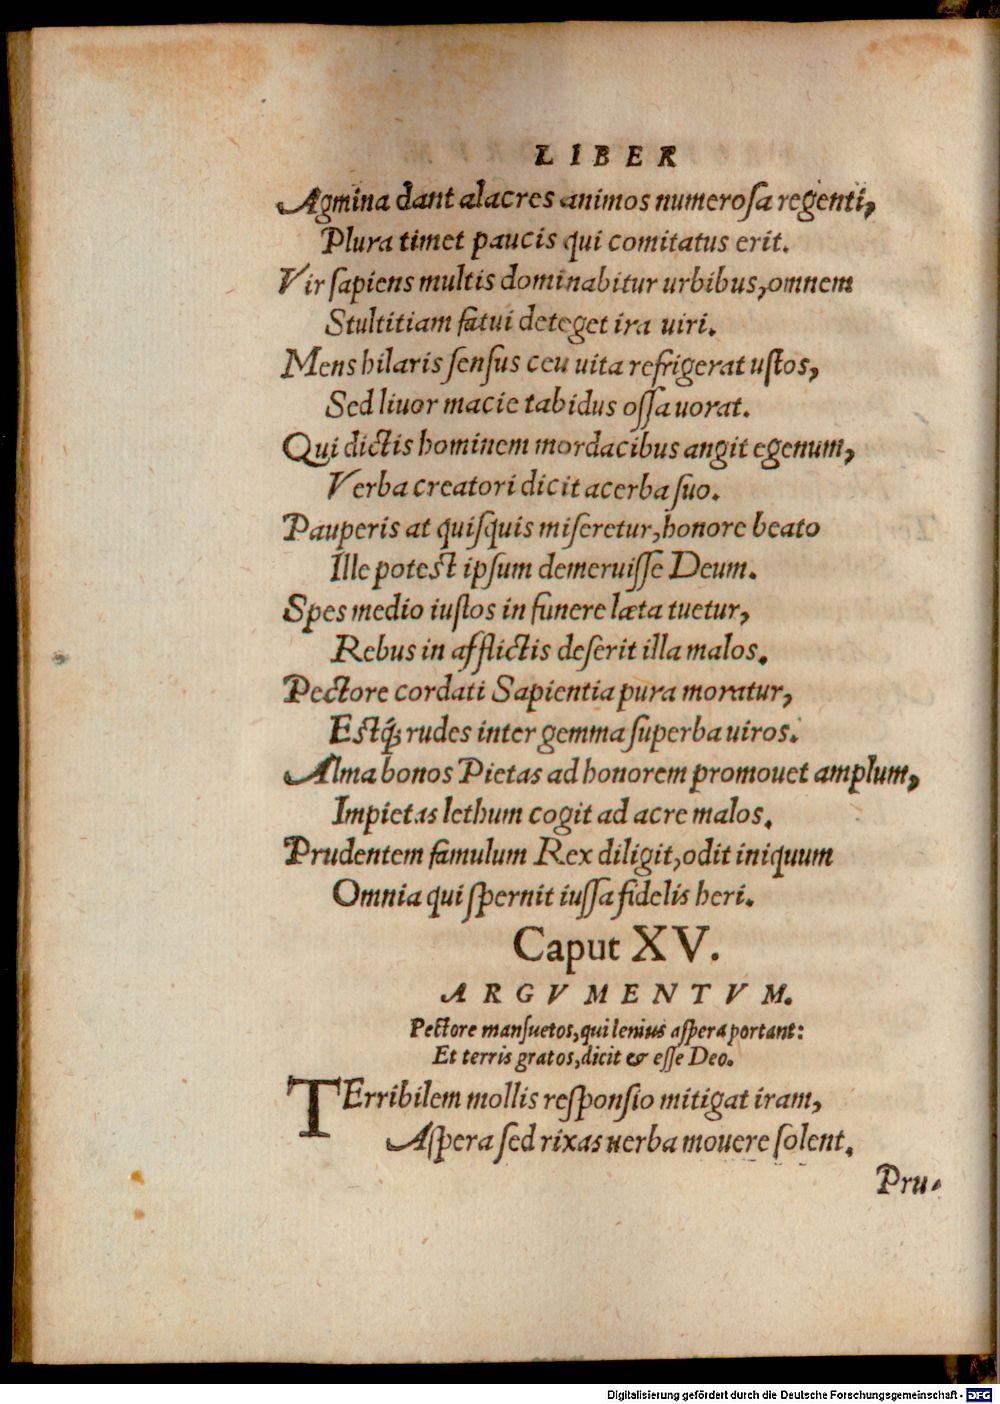 LIBER
Agmina dant alacres animos numeroſa regenti,
Plura timet paucis qui comitatus erit.
Vir ſapiens multis dominabitur urbibus, omnem
Stultitiam fatui deteget ira uiri.
Mens hilaris ſenſus ceu uita refrigerat uſtos,
Sed liuor macie tabidus oſſa uorat.
Qui dictis hominem mordacibus angit egenum,
Verba creatori dicit acerba ſuo.
Pauperis at quiſquis miſeretur, honore beato
Ille poteſt ipſum demeruiſſe Deum.
Spes medio iuſtos in funere læta tuetur,
Rebus in afflictis deſerit illa malos.
Pectore cordati Sapientia pura moratur,
Eſtq́ꝫ rudes inter gemma ſuperba uiros.
Alma bonos Pietas ad honorem promouet amplum,
Impietas lethum cogit ad acre malos.
Prudentem famulum Rex diligit, odit iniquum
Omnia qui ſpernit iuſſa fidelis heri.
Caput XV.
ARGVMENTVM.
Pectore manſuetos, qui lenius aſpera portant:
Et terris gratos, dicit & eſſe Deo.
TErribilem mollis reſponſio mitigat iram,
Aſpera ſed rixas uerba mouere ſolent.
Pru-
Digitalisierung gefördert durch die Deutsche Forschungsgemeinschaft - DFG